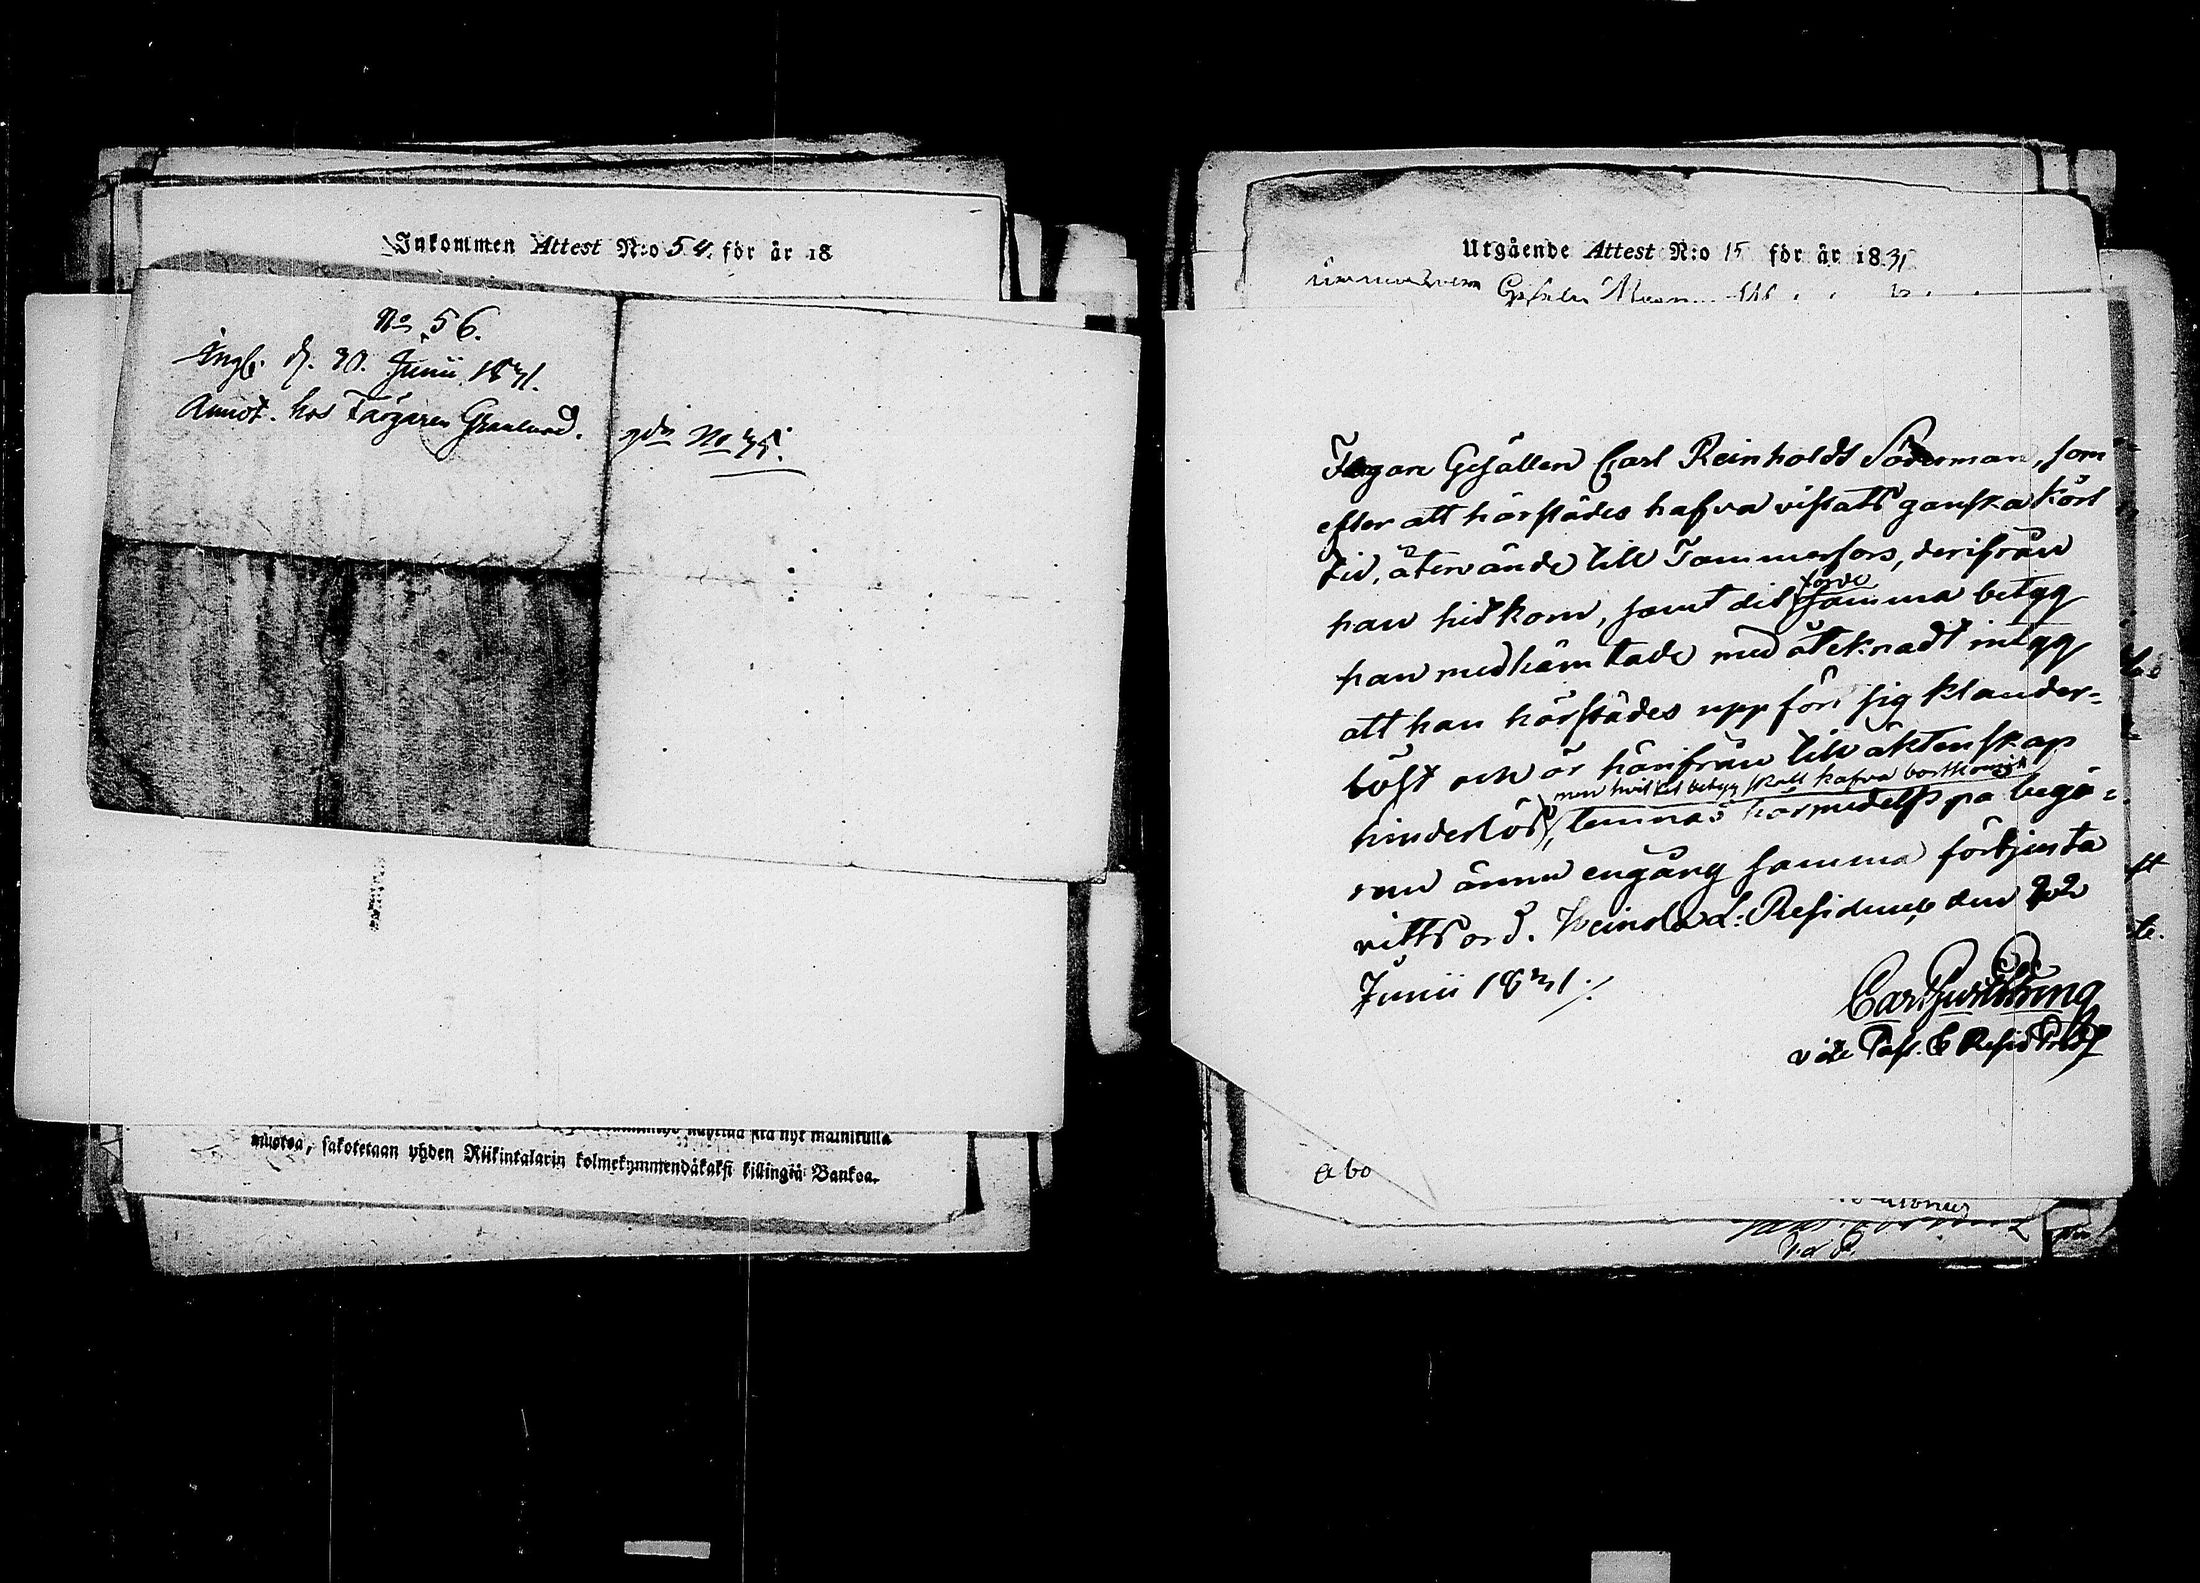 Inkommen Attest N:o 54. för år 18
No 56.
Ingb. d. 30. Junii 1831.
Annot. hos Färgaren Granlund.
gdn No 35.
muotoa, sakotetaan yhden Riikintalarin kolmekymmendäkaksi killingiä Bankoa.
Utgående Attest N:o 15 för år 1831
Färgare Gesällen Carl Reinholdt Söderman, som
efter att härstädes hafva vistats ganska kort
tid, återvände till Tammerfors, derifrån
han hitkom, samt dit förde
samma betyg
han medhämtade med åteknadt intyg
att han härstädes uppfört sig klander-
löst och är härifrån till äktenskap
men hvilket betyg skall hafva bortkommit
hinderlös, lemnas härmedelst på begä-
ran ännu engång samma förtjenta
vittsord. Heinola L: Residence den 22
Junii 1831./.
Carl Gust. Strång
vice Past. & Resid Pred
Abo